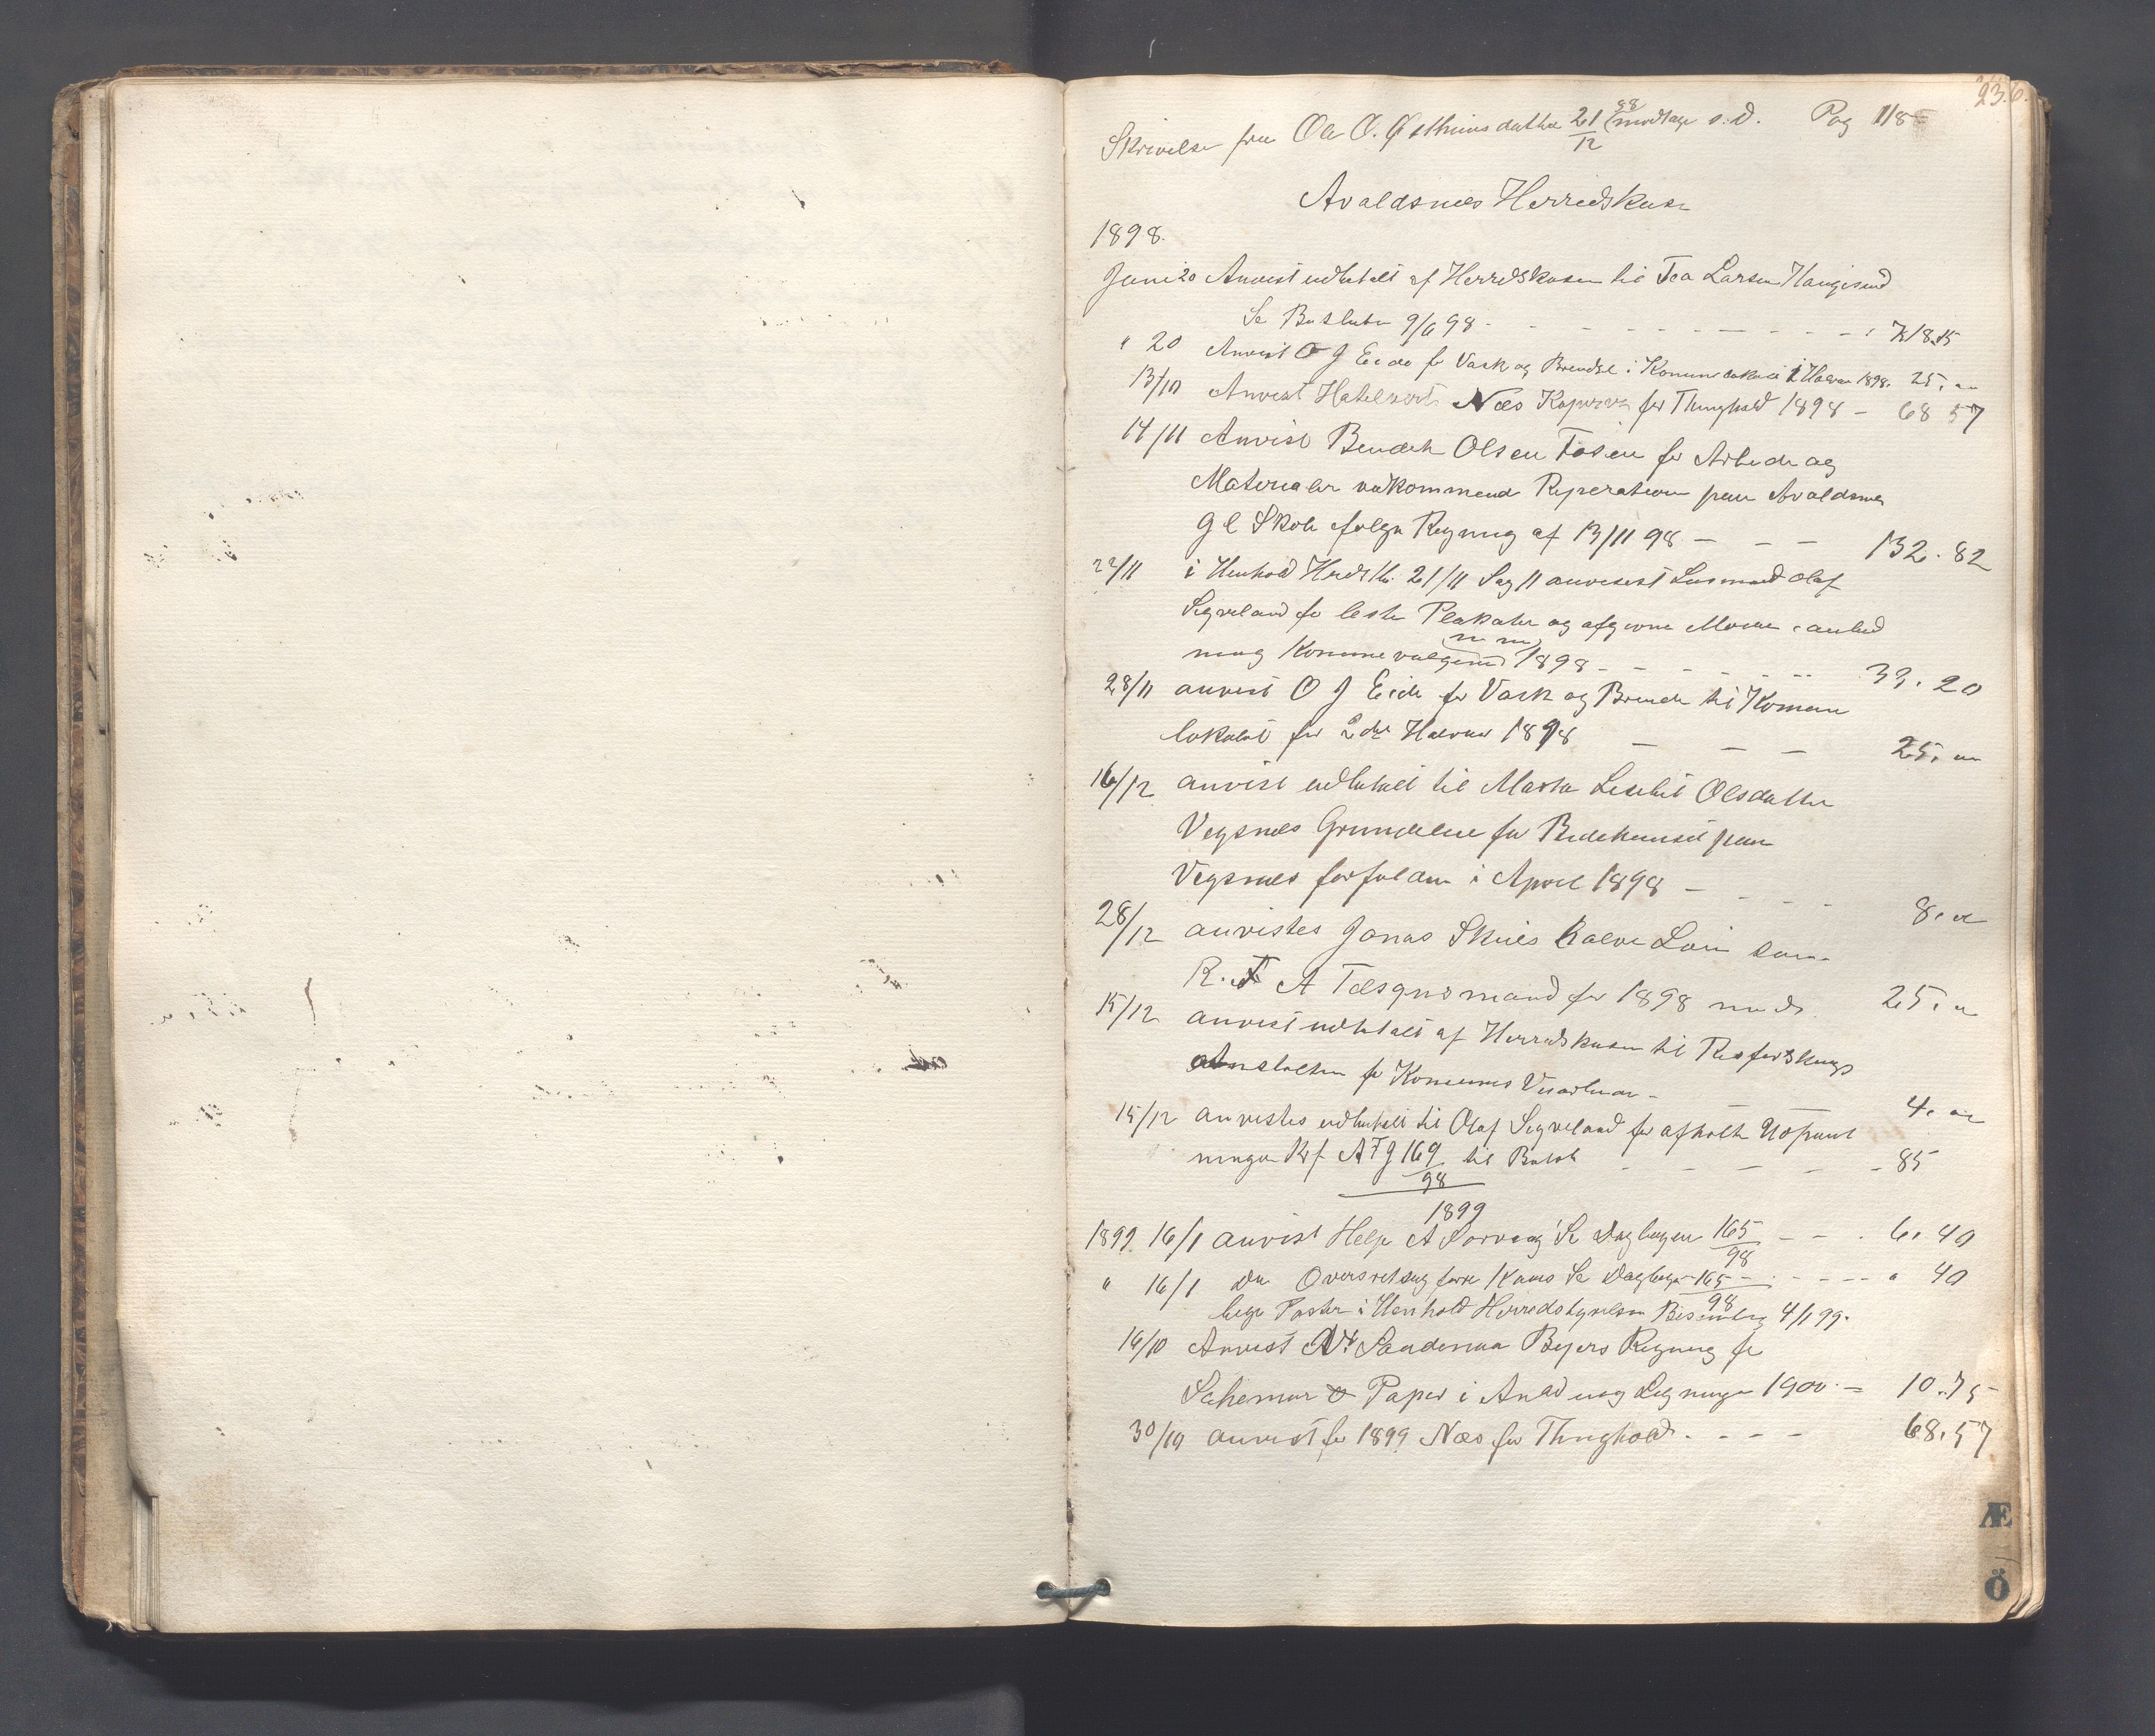 23.6.
Skrivelse fra Ole O. Østhuus datter 21/12 98 modtage s.d. Pag 118
Avaldsnes Herredskase
1898.
Juni 20 Anvist udbetalt af Herredskasen til Tea Larsen Haugesund
Se Beslutn 9/6 98 - - - Kr 18.15
" 20 Anvist O J Eide for Vask og Brendsel i Komunelokalet i 1 Halvaar 1898. 25. "
13/10 Anvist Hotelvert Næs Kopervik for Thinghold 1898 - 68 57
14/11 Anvist Bendik Olsen Tosen for Arbeide og
Materialer vedkommend Reperation paa Avaldsnes
gl Skole ifølge Regning af 13/11 98 - - - 132.82
22/11 i Henhold Hrdst. 21/11 Sag 11 anvisest Lensmand Olaf
Sigveland for leste Plakater og afgivne i anled
m m
ning Komunevalgene 1898 - - - 33.20
28/11 anvist O J Eide for Vask og Brende til Komune
lokalet for 2det Halvaar 1898 - - - 25. "
16/12 anvist udbetalt til Marta Lisebet Olsdatter
Vegsnes Grundleie for Bedehuuset paa
Vegsnes forfalden i April 1898 - - - 8. "
28/12 anvistes Jonas Skeies halve Løn som
R. F A Tilsynsmand for 1898 med 25. "
15/12 anvist udbetalt af Herredskasen til Rigsforsikrings
Anstalten for Komunens - 4. "
15/12 anvistes udbetalt til Olaf Sigveland for afholte Udpant
ninger Krf A F J 169/98 til Beløb - - - 85
1899
1899. 16/1 anvist Helje A Sorvaag Se Dagbogen 165/98 - - - 6. 40
" 16/1 Do Oversretssagfører Knaus Se Dagbogen 165/98 - - - " 40
begge Poster i Henhold Herredstyrelsen 4/1 99.
16/10 Anvist A/S Sandesmaa Beyers Regning for
Schemar & Papir i Anledning Ligningen 1900. - 10.75
30/10 anvist for 1899 Næs for Thinghold. - - - 68.57
Æ
Ö